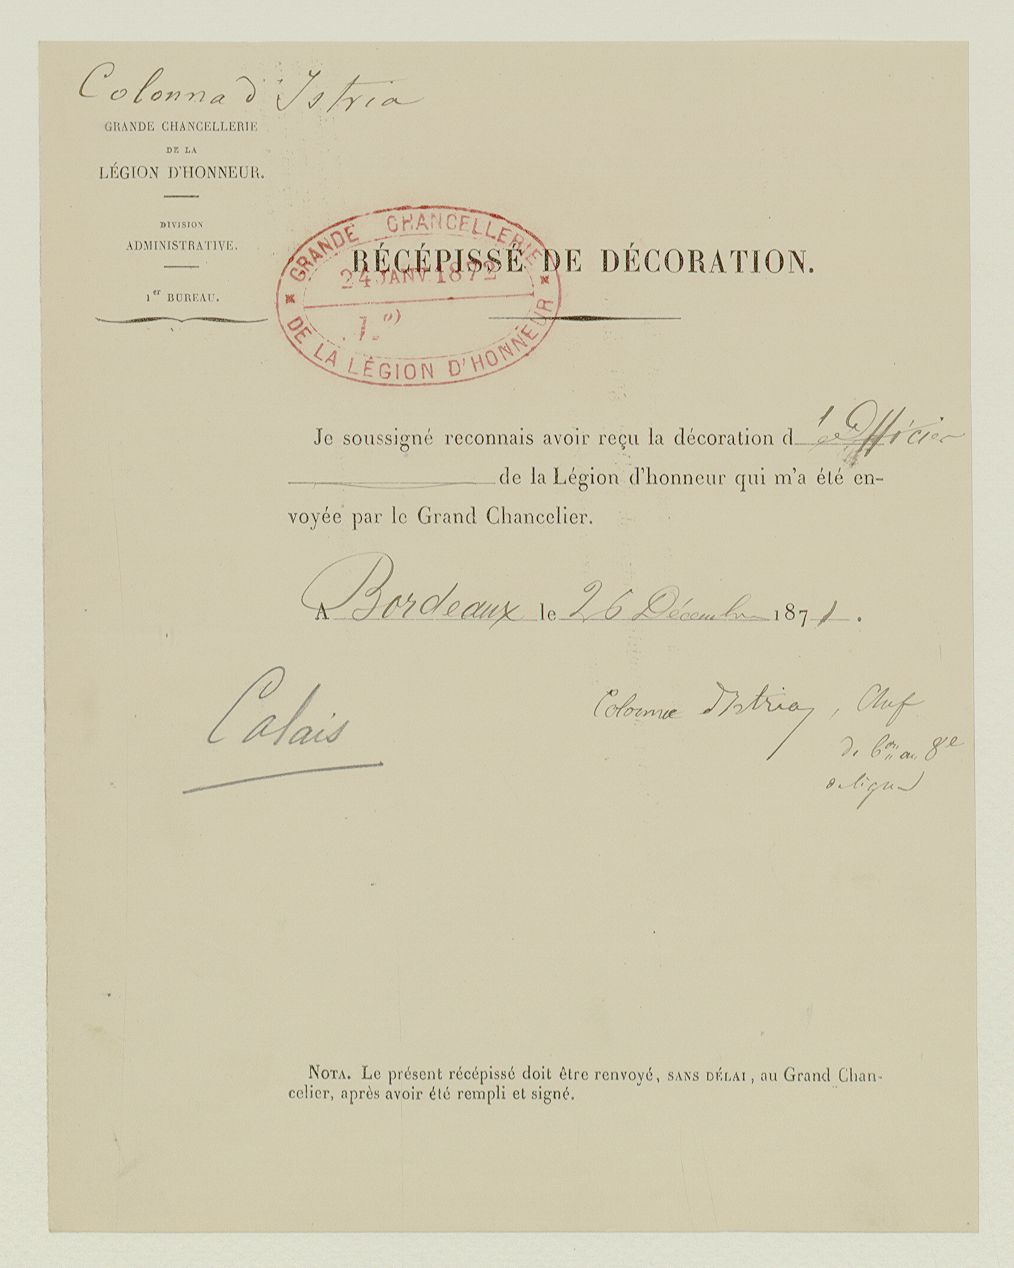 Colonna d'Istria
GRANDE CHANCELLERIE
DE LA
LÉGION D'HONNEUR.
DIVISION
ADMINISTRATIVE.
1er BUREAU.
GRANDE CHANCELLERIE
24 JANV 1872
DE LA LÉGION D'HONNEUR
RÉCÉPISSÉ DE DÉCORATION.
Je soussigné reconnais avoir reçu la décoration d Officier
de la Légion d'honneur qui m'a été en-
voyée par le Grand Chancelier.
A Bordeaux le 26 Décembre 1871.
Calais
Colonna d'Istria, Chef
de bon au 8e
de ligne
NOTA. Le présent récépissé doit être renvoyé, SANS DÉLAI, au Grand Chan-
celier, après avoir été rempli et signé.